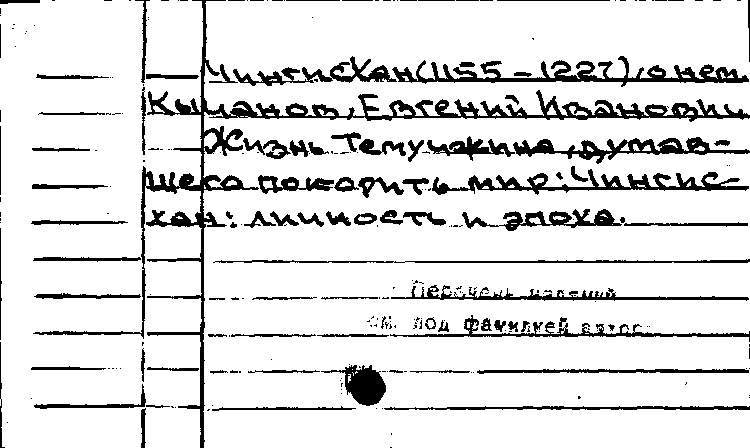 Чингисхан (1155 - 1227), о нем
Кычанов, Евгений Иванович
Жизнь Темучжина, думав-
шего покорить мир: Чингис-
хан: личность и эпоха.
Перечень изданий
см. под фамилией автора